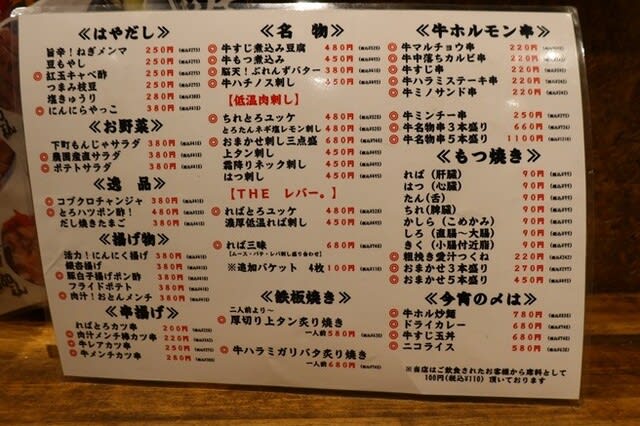 ≪はやだし≫
旨辛！ねぎメンマ 250円 (税込¥275)
豆もやし 250円 (税込¥275)
◎紅玉キャベ酢 250円 (税込¥275)
つまみ枝豆 250円 (税込¥275)
塩きゅうり 280円
◎にんにらやっこ 380円
≪お野菜≫
下町もんじゃサラダ 380円
◎農園産直サラダ 380円
◎ポテトサラダ 380円
≪逸品≫
◎コブクロチャンジャ 380円
◎とろハツポン酢！ 480円
だし焼きたまご 380円
≪揚げ物≫
活力！にんにく揚げ 380円
根岩揚げ 380円
◎豚白子揚げポン酢 380円
フライドポテト 380円
◎肉汁！おとんメンチ 380円
≪串揚げ≫
ればとろカツ串 200円
◎肉汁メンチ棒カツ串 220円
◎牛レアカツ串 250円
◎牛メンチカツ串 280円
≪名物≫
◎牛すじ煮込み豆腐 480円
◎牛もつ煮込み 450円
◎脳天！ぶれんずバター 380円
◎牛ハチノス刺し 450円
【低温肉刺し】
◎ちれとろユッケ 480円
とろたんネギ塩レモン刺し 480円
◎おまかせ刺し三点盛 680円
上タン刺し 450円
霜降りネック刺し 450円
はつ刺し 450円
【THE レバー。】
◎ればとろユッケ 480円
濃厚低温れば刺し 450円
◎れば三味 680円
【ムース・パテ・レバ刺し盛り合わせ】
※追加バケット 4枚 100円
≪鉄板焼き≫
二人前より～
◎厚切り上タン炙り焼き
一人前580円
◎牛ハラミガリバタ炙り焼き
一人前680円
≪牛ホルモン串≫
◎牛マルチョウ串 220円 (税込¥242)
◎牛中落ちカルビ串 220円 (税込¥242)
◎牛すじ串 220円 (税込¥242)
◎牛ハラミステーキ串 220円 (税込¥242)
◎牛ミノサンド串 220円 (税込¥242)
◎牛ミンチー串 250円 (税込¥275)
◎牛名物串3本盛り 660円
◎牛名物串5本盛り 1100円
≪もつ焼き≫
れば（肝臓） 90円 (税込¥99)
はつ（心臓） 90円 (税込¥99)
たん（舌） 90円 (税込¥99)
ちれ（脾臓） 90円 (税込¥99)
かしら（こめかみ） 90円 (税込¥99)
しろ（直腸～大腸） 90円 (税込¥99)
きく（小腸付近脂） 90円 (税込¥99)
◎粗挽き愛汁つくね 220円
◎おまかせ3本盛り 270円
◎おまかせ5本盛り 450円
≪今宵の〆は≫
◎牛ホル炒麺 780円
◎ドライカレー 680円
◎牛すじ玉丼 680円
◎ニコライス 580円
※当店はご飲食されたお客様から席料として
100円(税込¥110) 頂いております